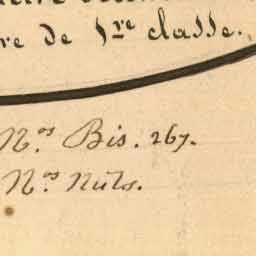 re de 1re classe.
Nos. Bis. 267.
Nos. Nuls.